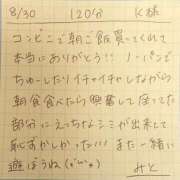 8/30 120分 K様
コンビニで朝ご飯買ってくれて
本当にありがとう!! ノーパンで
ちゅーしたりイチャイチャしながら
朝食食べたら興奮して座ってた
部分にえっちなシミが出来して
恥ずかしかった… また一緒に
遊ぼうね(*'ω'*) みと